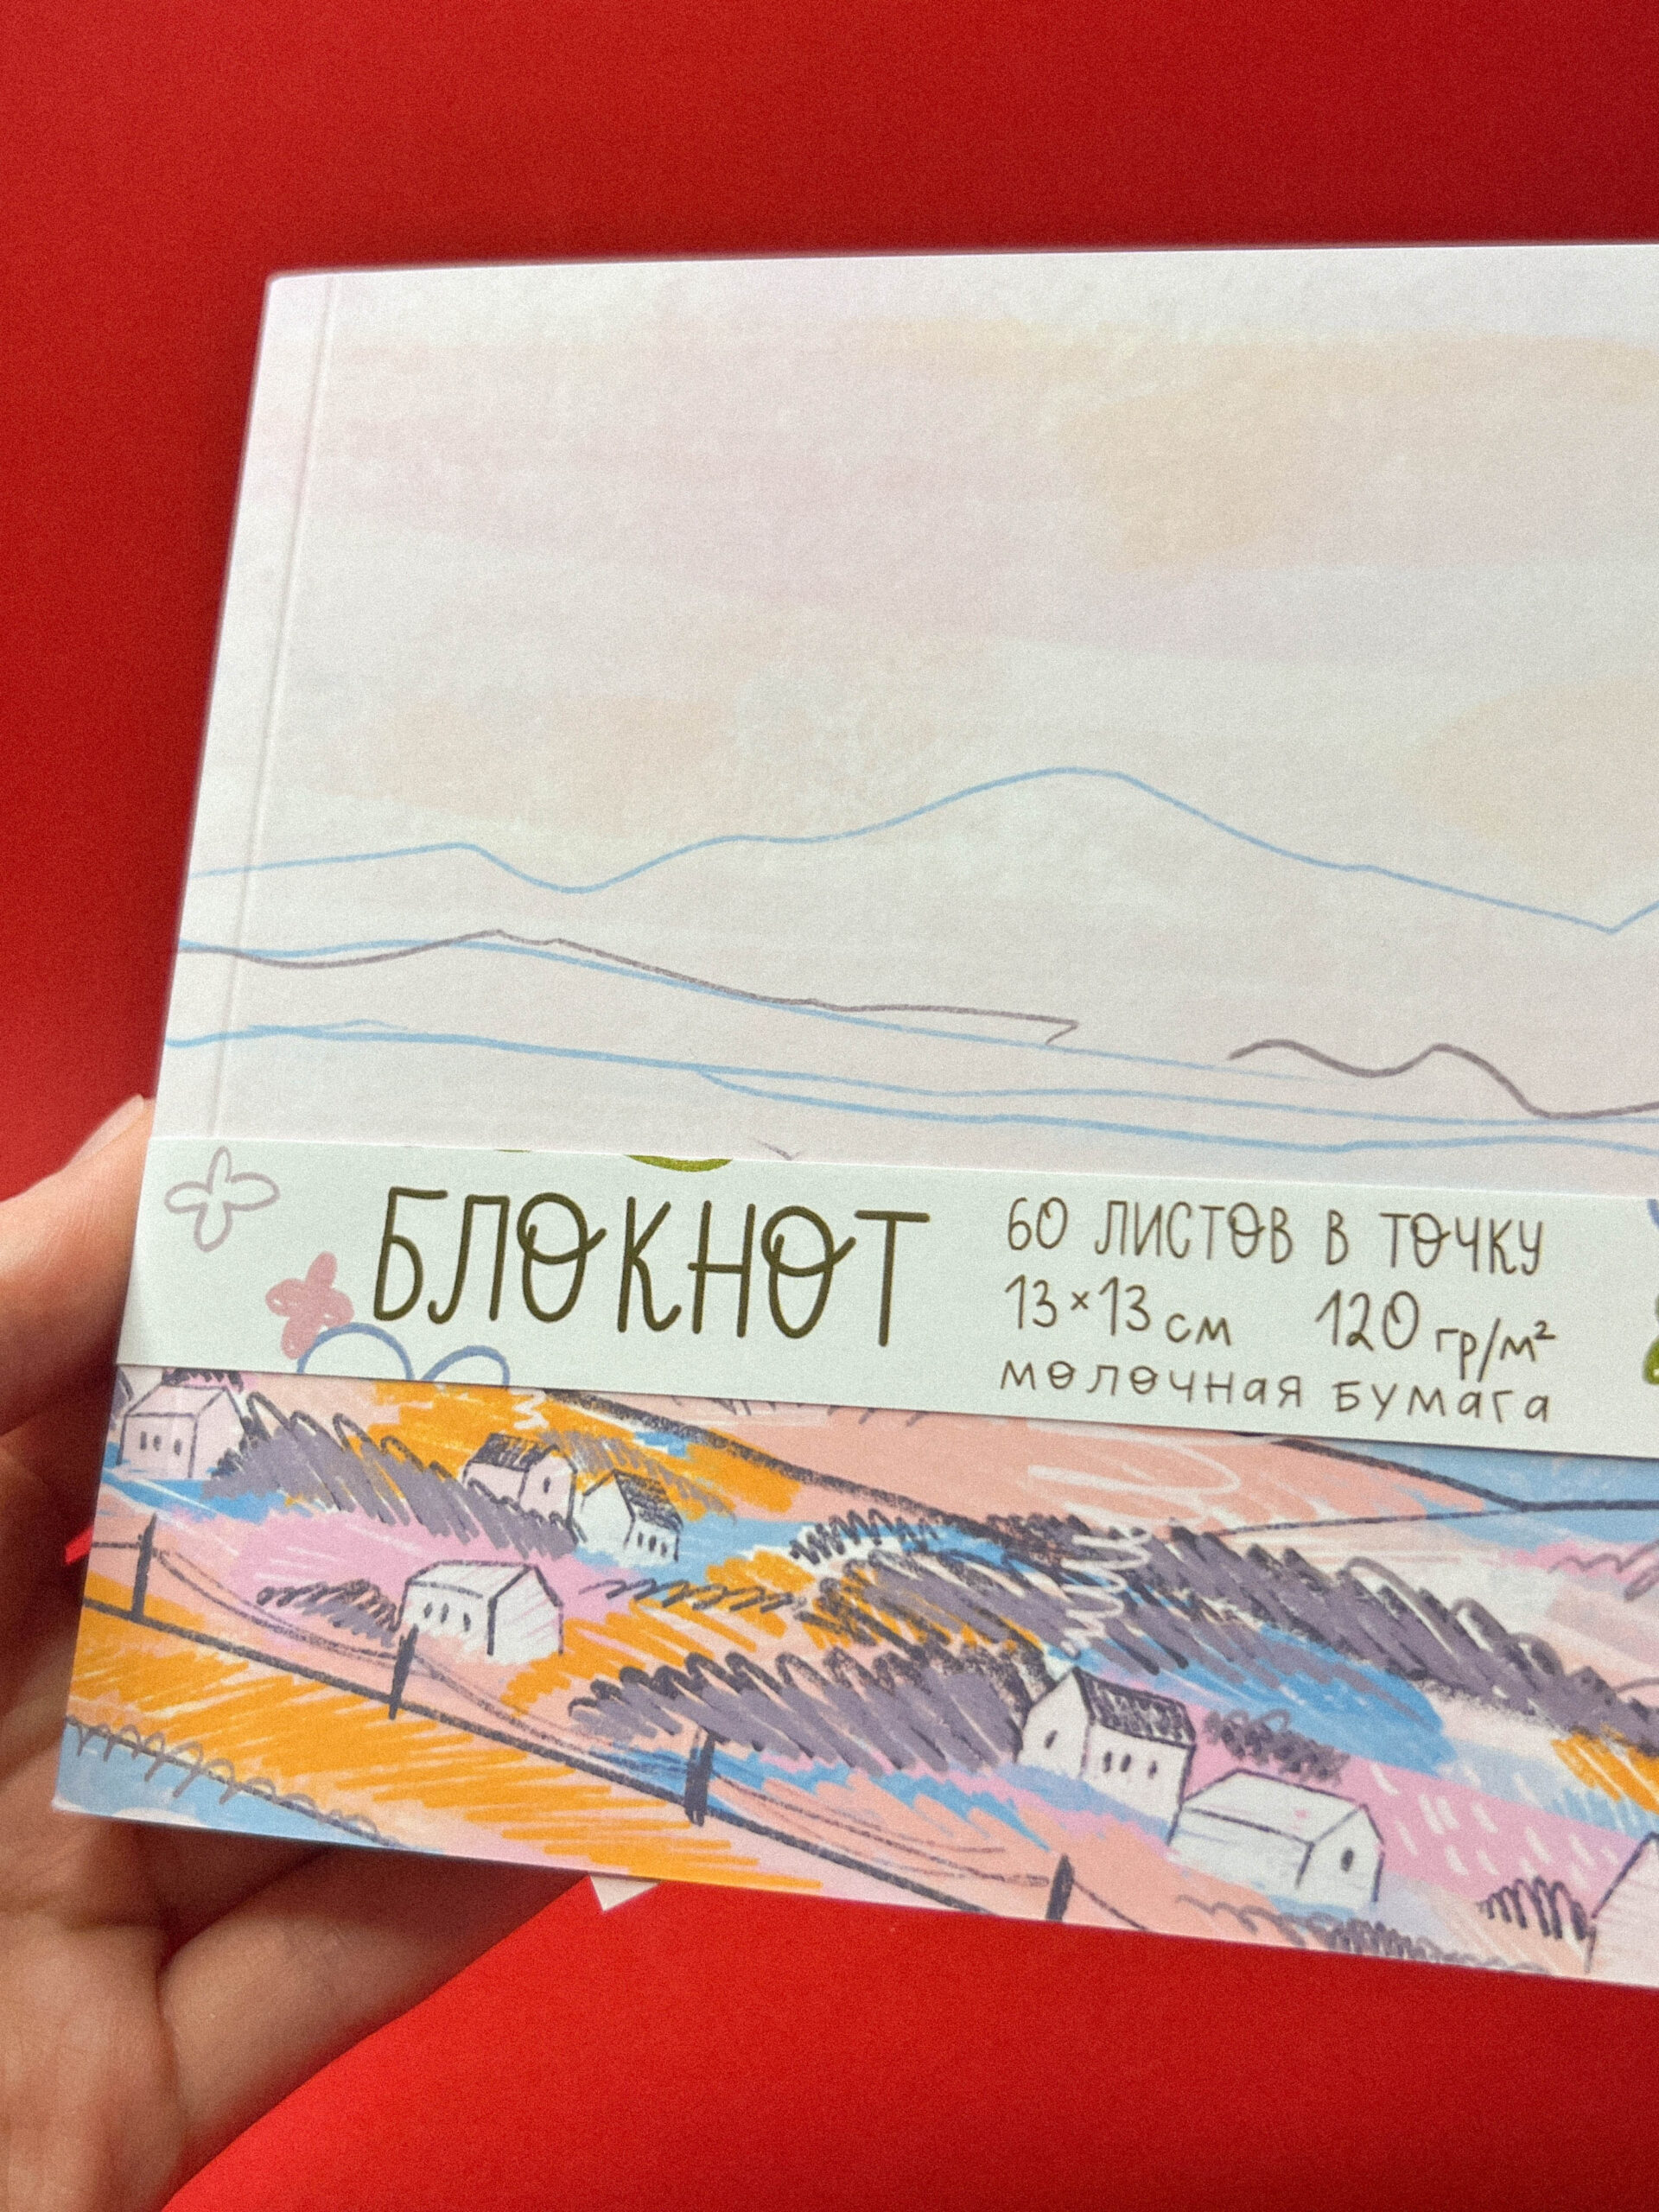 БЛОКНОТ
60 ЛИСТОВ В ТОЧКУ
13×13 см 120 гр/м²
молочная бумага